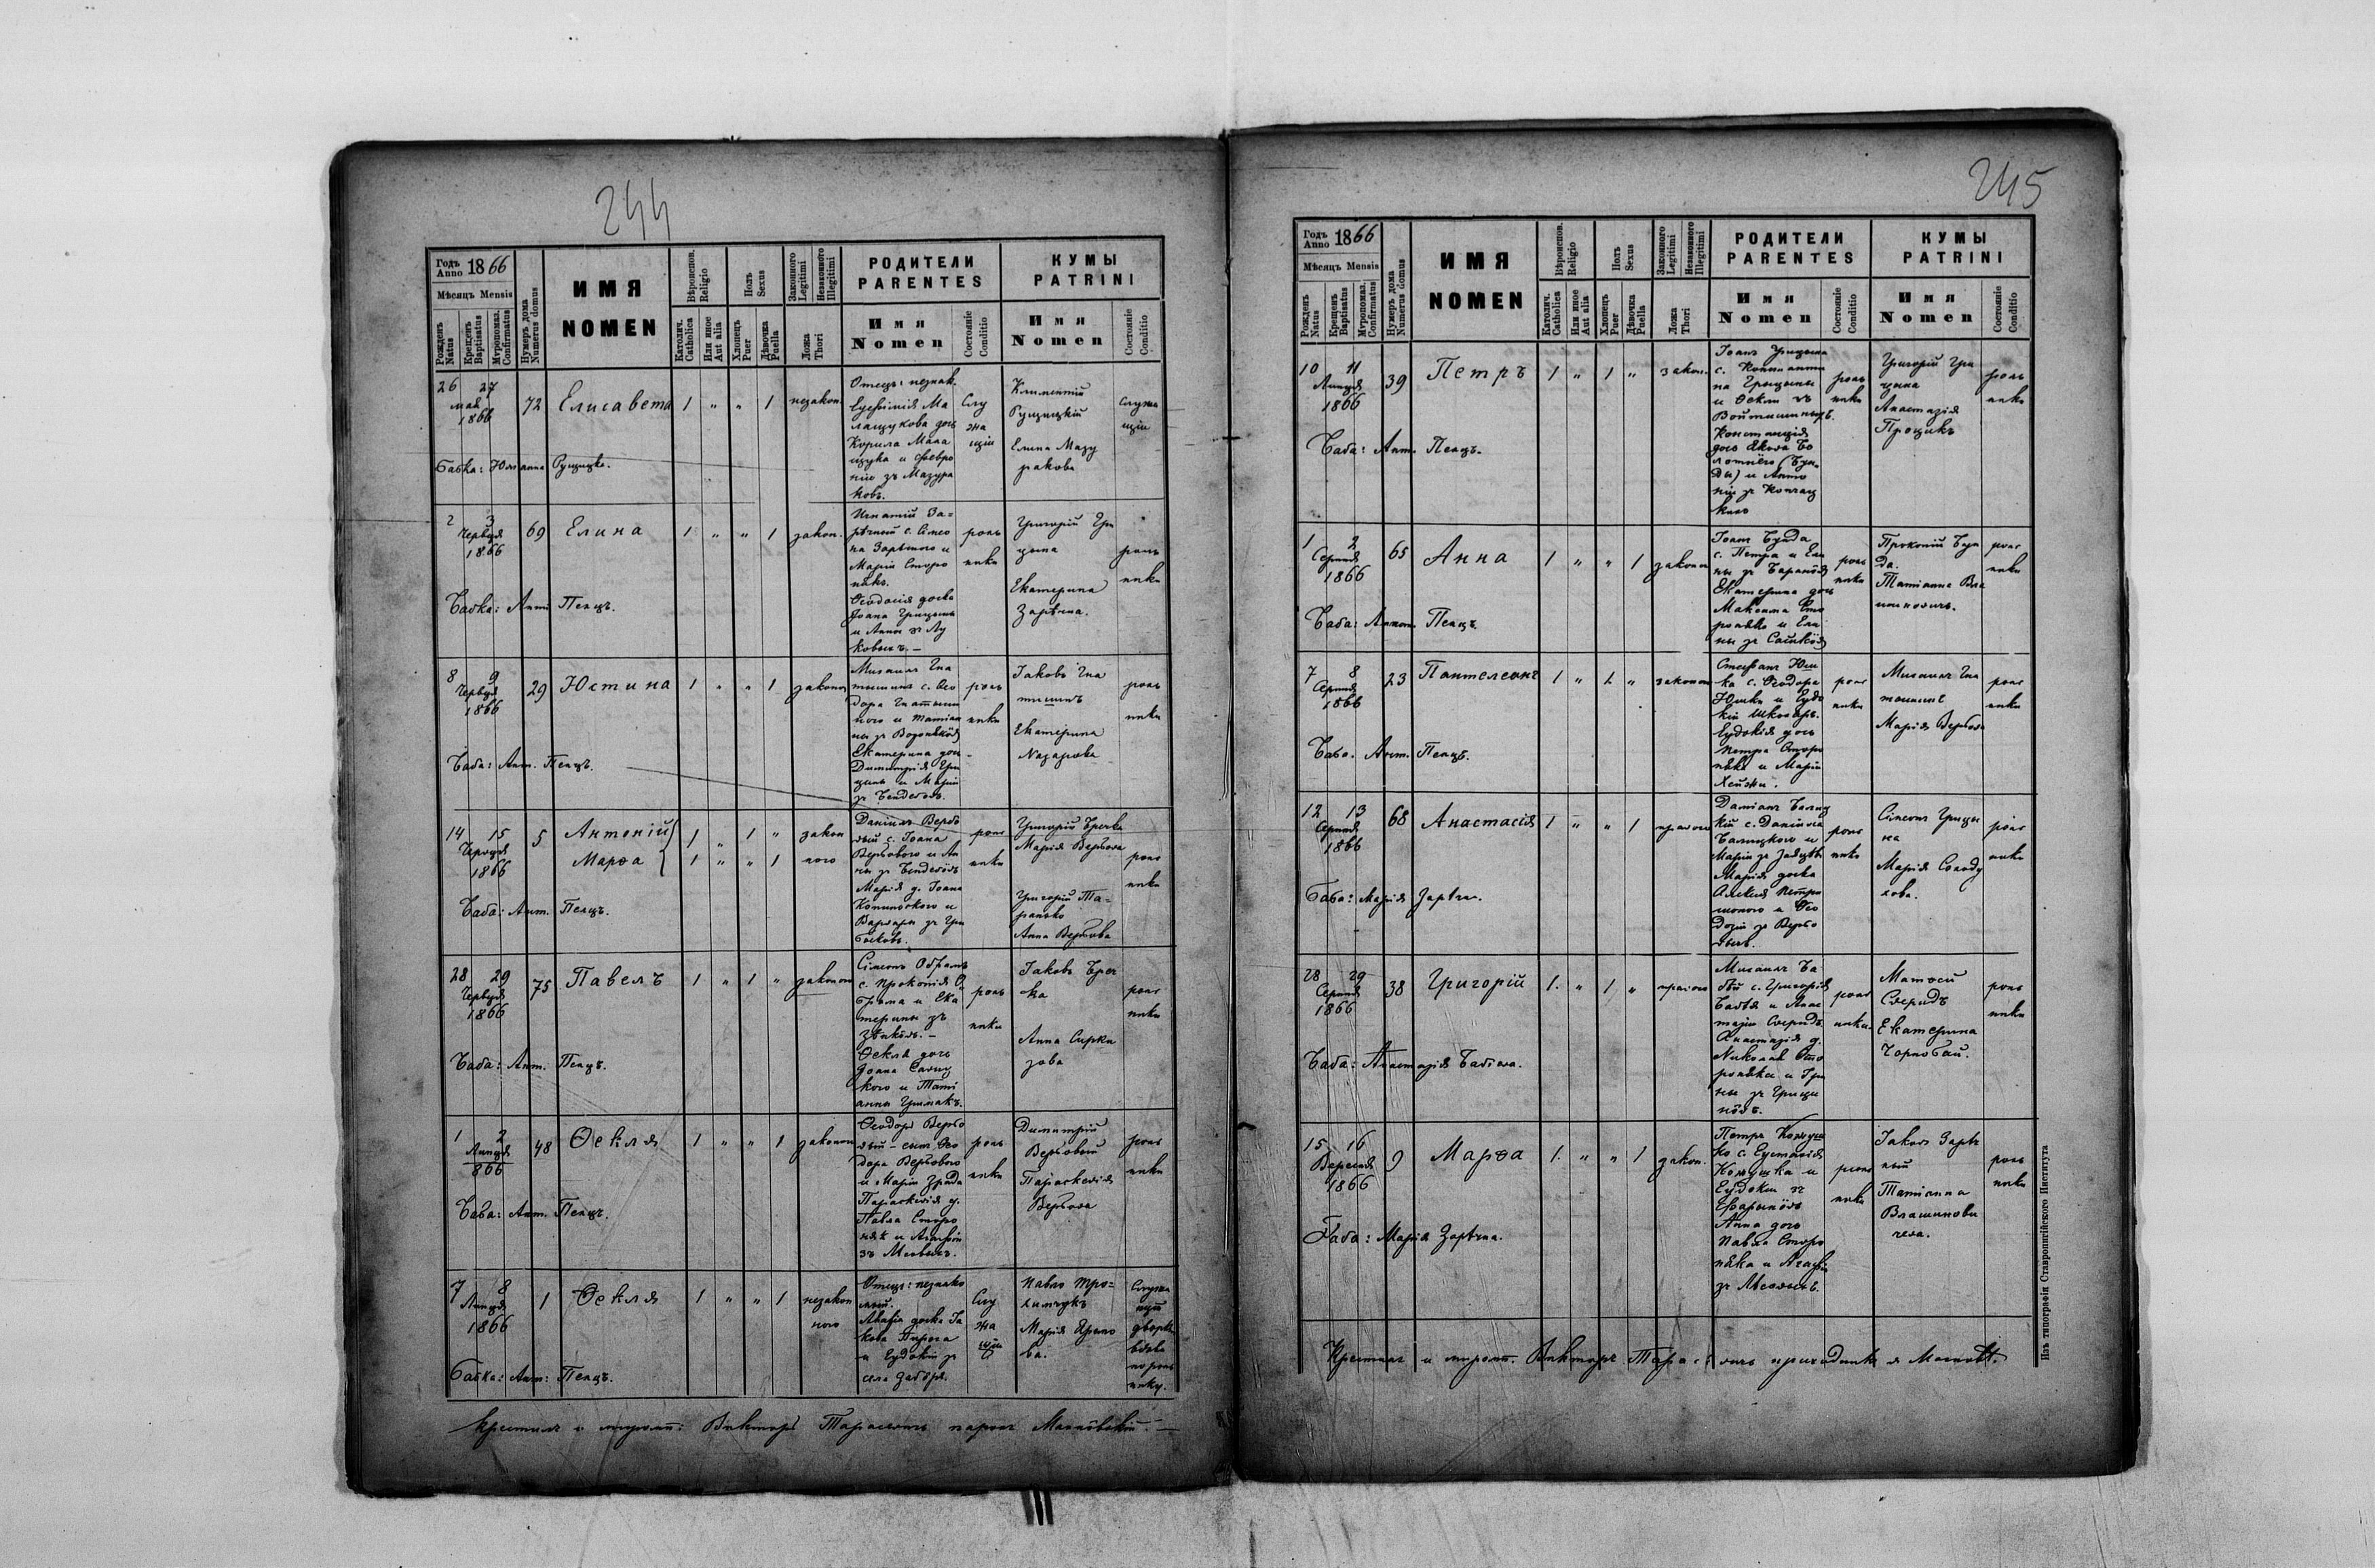 244
Годъ Anno 1866
Мѣсяцъ Mensis
Рожденъ Natus
Крещенъ Baptisatus
Мѵропомаз. Confirmatus
Нумеръ дома Numerus domus
ИМЯ
NOMEN
Вѣроиспов. Religio
Католич. Catholica
Или иное Aut alia
Полъ Sexus
Хлопецъ Puer
Дѣвочка Puella
Законного Legitimi
Незаконного Illegitimi
Ложа Thori
РОДИТЕЛИ
PARENTES
Имя
Nomen
Состояніе Conditio
КУМЫ
PATRINI
Имя
Nomen
Состояніе Conditio
26 27
мая
1866
72 Елисавета 1 " " 1 незакон.
Отецъ: незнак.
Евфимія Ма
лащукова дочь
Курила Мала
щука и Февро
ніи зъ Мазура
ковъ.
Слу
жа
щіи
Климентій
Рущицкій
Елина Мазу
ракова
служа
щіи
Бабка: Юліанна Рущицка.
2 3
Червця
1866
69 Елина 1 " " 1 закон.
Игнатій За-
рѣчный с. Симео
на Зарѣчного и
Маріи Сторо
нѣкъ.
Феодосія дочка
Іоанна Грицины
и Анны зъ Лу
ковыхъ. –
роль
ники
Григорій Гри
цына
Екатерина
Зарѣчна.
роль
ники
Бабка: Ант. Пенцъ.
8 9
Червця
1866
29 Юстина 1 " " 1 законн
Михаилъ Гна
тышинъ с. Фео
дора Гнатыши
ного и Татіан
ны зъ
Екатерина дочь
Димитрія Гри
цины и Маріи
зъ Бендеровъ.
роль
ники
Іаковъ Гна
тишинъ
Екатерина
Назаркова
роль
ники
Баба: Ант. Пенцъ.
14 15
Червця
1866
5 Антоній 1 " 1 " закон
Марѳа 1 " " 1 ного
Даніилъ Вербо
вый с. Іоанна
Вербового и Ан
ны зъ Бендеровъ
Марія д. Іоанна
Копиновского и
Варвары зъ Гри
быковъ.
роль
ники
Григорій Бречка
Марія Вербова
Григорій Та-
ранько
Анна Вербова
роль
ники
Баба: Ант. Пенцъ.
28 29
Червця
1866
75 Павелъ 1 " 1 " законн
Симеонъ Обрамъ
с. Прокопія О
брама и Ека
терины зъ
Зѣнковъ. –
Ѳекля дочь
Іоанна Салиц
кого и Таті
анны Гримакъ.
роль
ники
Іаковъ Бреч
ка
Анна Сирки
зова
роль
ники
Баба: Ант. Пенцъ.
1 2
Липця
866
48 Ѳекля 1 " " 1 законн
Ѳеодоръ Вербо
вый – сынъ Ѳео
дора Вербового
и Маріи Зрада
Параскевія д.
Павла Сторо
нѣк и Агафіи
зъ
роль
ники
Димитрій
Вербовый
Параскевія
Вербова
роль
ники
Баба: Ант. Пенцъ.
7 8
Липця
1866
1 Ѳекля 1 " " 1 незакон
ного
Отецъ: незнако
мый.
Агафія дочка Іа
кова Пирога
и Евдокіи зъ
села
Слу
жа
щіи
Павло Тро-
химчукъ
Марія Ярмо
ва.
служа
щій
вдова
по роль
нику.
Бабка: Ант: Пенцъ.
Крестилъ и миропом: Викторъ Тарасевичъ парохъ
245
Годъ Anno 1866
Мѣсяцъ Mensis
Рожденъ Natus
Крещенъ Baptisatus
Мѵропомаз. Confirmatus
Нумеръ дома Numerus domus
ИМЯ
NOMEN
Вѣроиспов. Religio
Католич. Catholica
Или иное Aut alia
Полъ Sexus
Хлопецъ Puer
Дѣвочка Puella
Законного Legitimi
Незаконного Illegitimi
Ложа Thori
РОДИТЕЛИ
PARENTES
Имя
Nomen
Состояніе Conditio
КУМЫ
PATRINI
Имя
Nomen
Состояніе Conditio
10 11
Липця
1866
39 Петръ 1 " 1 " закон.
Іоаннъ Грицына
с. Константи
на Грицыны
и Ѳекли зъ
Войтишиныхъ.
Констанція
дочь Якова Бо
лотного (Бун
ды) и Анто
ніи зъ
роль
ники
Григорій Гри
цына
Анастазія
Процикъ
роль
ники
Баба: Ант. Пенцъ.
1 2
Серпня
1866
65 Анна 1 " " 1 законн
Іоаннъ Бунда
с. Петра и Ели
ны зъ
Екатерина дочь
Максима Сто
ронѣка и Ели
ны зъ
роль
ники
Прокопій Бун
да.
Татіанна Вла
шиновичъ.
роль
ники
Баба: Антон. Пенцъ.
7 8
Серпня
1866
23 Пантелеонъ 1 " 1 " законн
Стефанъ Юш
ка с. Ѳеодора
Юшки и Евдо
кіи Школяръ.
Евдокія дочь
Петра Сторо
нѣка и Маріи
роль
ники
Михаилъ Гна
тишинъ
Марія Вербова
роль
ники
Баба. Ант. Пенцъ.
12 13
Серпня
1866
68 Анастасія 1 " " 1 правого
Даміанъ Балиц
кій с. Даніила
Балицкого и
Маріи зъ
Марія дочка
Алексія Петри
шоного и Ѳео
дозіи зъ Вербо
выхъ.
роль
ники
Симеонъ Грицы
на
Марія Солоду
хова.
роль
ники
Баба: Марія Зарѣчна.
28 29
Серпня
1866
38 Григорій 1. " 1 " правого
Михаилъ Ба
бѣй с. Григорія
Бабѣя и Анас
тазіи Сверидъ.
Анастазія д.
Николая Сто
ронѣка и Ири
ны зъ Грици
новъ.
роль
ники.
Матѳей
Сверидъ
Екатерина
Чорнобай.
роль
ники
Баба: Анастазія Бабѣева.
15 16
Вересня
1866
9 Марѳа 1. " " 1 закон.
Петръ Кожуш
ко с. Евстахія
Кожушка и
Евдокіи зъ
Анна дочь
Павла Сторо
нѣка и Агафіи
зъ
роль
ники
Іаковъ Зарѣч
ный
Татіанна
Влашинови
чева.
роль
ники
Баба: Марія Зарѣчна.
Крестилъ и миропом. Викторъ Тарасевичъ приходникъ
Изъ типографіи Ставропигійского Института